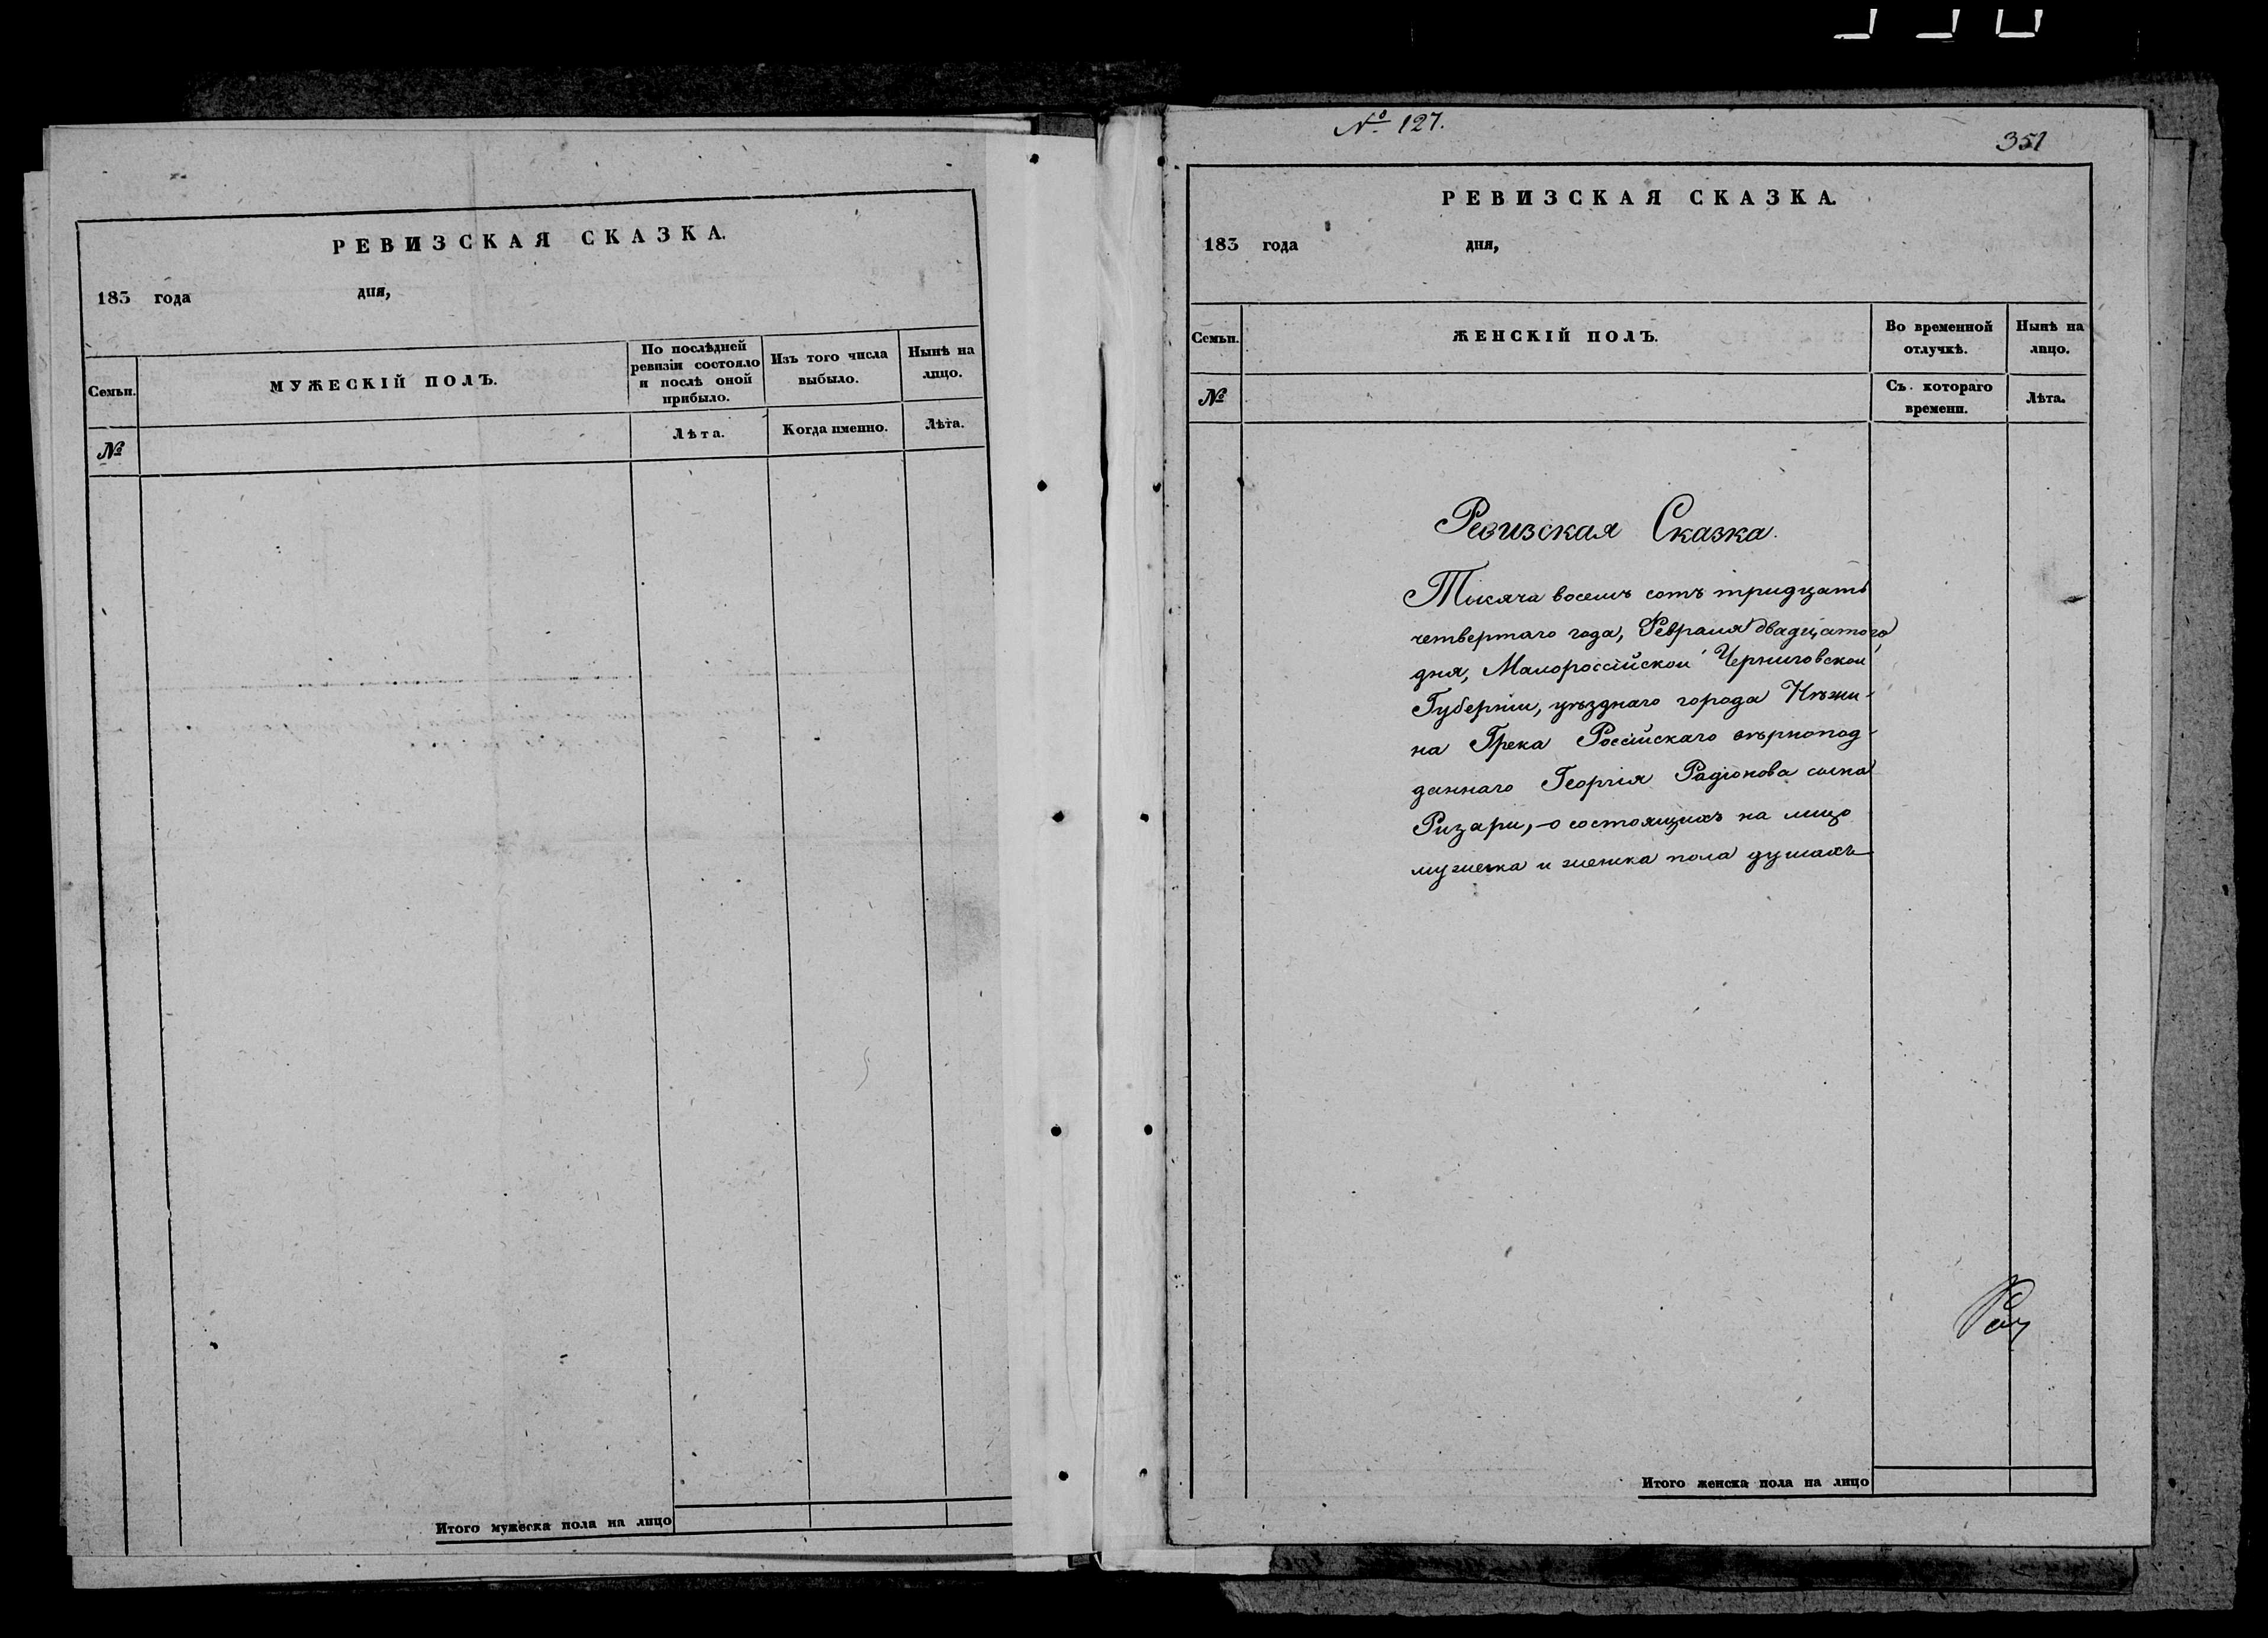 РЕВИЗСКАЯ СКАЗКА.
183 года дня,
Семьи.
МУЖЕСКІЙ ПОЛЪ.
По послѣдней
ревизіи состояло
и послѣ оной
прибыло.
Изъ того числа
выбыло.
Нынѣ на
лицо.
№
Лѣта.
Когда именно.
Лѣта.
Итого мужеска пола на лицо
№ 127.
351
РЕВИЗСКАЯ СКАЗКА.
183 года дня,
Семьи.
ЖЕНСКІЙ ПОЛЪ.
Во временной
отлучкѣ.
Нынѣ на
лицо.
№
Съ котораго
времени.
Лѣта.
Ревизская Сказка.
Тысяча восемъ сотъ тридцать
четвертаго года, Февраля двадцатого
дня, Малороссійской Черниговской
Губерніи, уѣзднаго города Нѣжи-
на Грека Россійскаго вѣрнопод-
даннаго Георгія Радіонова сына
Ризари, - о состоящихъ на лицо
мужеска и женска пола душахъ
Итого женска пола на лицо